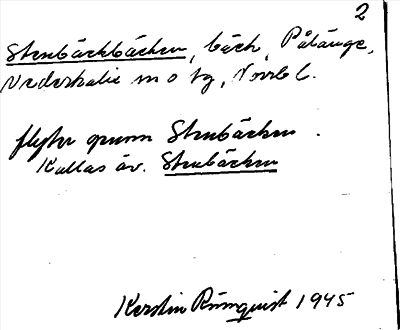 2
Stenbäckbäcken, bäck, Påläng,
Nederkalix sn o tg, Norrb l.
flyter genom Stenbäcken.
Kallas äv. Stenbäcken
Kerstin Rönnquist 1945